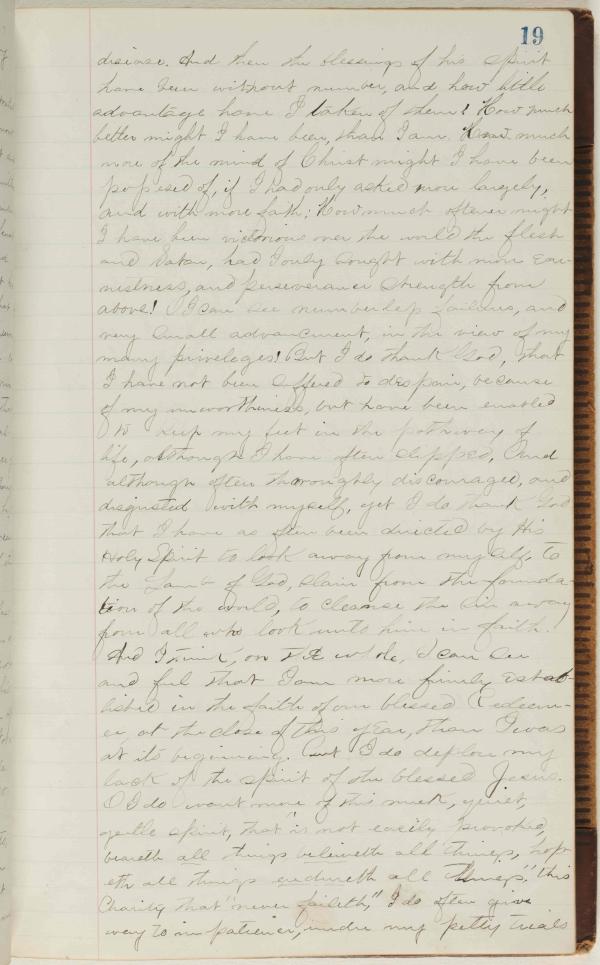 19
disease. And then the blessings of his spirit
have been without number, and how little
advantage have I taken of them! How much
better might I have been, than I am. How much
more of the mind of Christ might I have been
possessed of, if I had only asked more largely,
and with more faith; How much oftener might
I have been victorious over the world the flesh
and Satan, had I only sought with more ear-
nestness, and perseverance strength from
above! I can see numberless failures, and
very small advancment, in the view of my
many priveleges! But I do thank God, that
I have not been suffered to despair, because
of my unworthiness, but have been enabled
to keep my feet in the pathway of
life, although I have often slipped. And
although often thoroughly discouraged, and
disgusted with myself, yet I do thank God
that I have as often been directed by His
Holy Spirit to look away from myself, to
the Lamb of God, slain from the founda-
tion of the world, to cleanse the sin away
from all who look unto him in faith.
And I think, on the whole, I can see
and feel that I am more firmly estab-
lished in the faith of our blessed Redeem-
er, at the close of this year, than I was
at its beginning. But I do deplore my
lack of the spirit of the blessed Jesus.
O I do want more of this meek, quiet,
gentle spirit, that "is not easily provoked,
beareth all things believeth all things, hop-
eth all things endureth all things," this
Charity that "never faileth," I do often give
way to impatience, under my petty trials